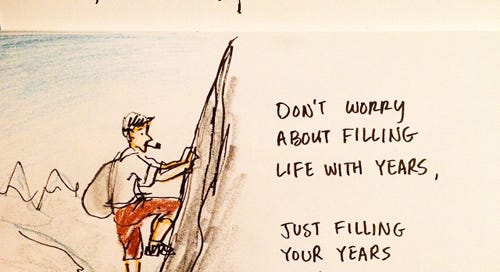 DON'T WORRY
ABOUT FILLING
LIFE WITH YEARS,
JUST FILLING
YOUR YEARS